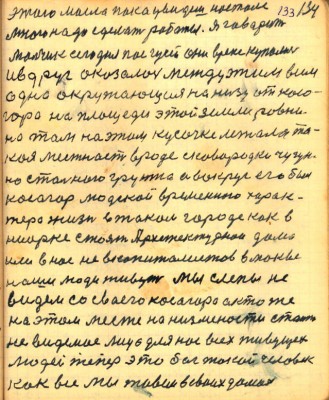 этого мала пока увидеш настоле 133/34
много надо сделать работы. Я говарит
молчик сегодня пас гусей они в реке купалис
и вдруг оказалос между этим всем
одно окружающия на низу от косо-
гора на площеди этой земли ровни-
но там на этом кусочке лежала та-
кая местност вроде сковародки чугун-
но сталного грунта а вокруг его был
косагор людской временного харак-
тера жизн в таком городе как в
стоят Архетектурнои дома
или в нас не в капиталистов в
наши люди живут мы слепы не
видем со сваего косагора а кто же
на этом месте на низмености стаит
не видемое лицо для нас всех живущех
людей тепер это бог такой человек
как все мы живем в своих домах